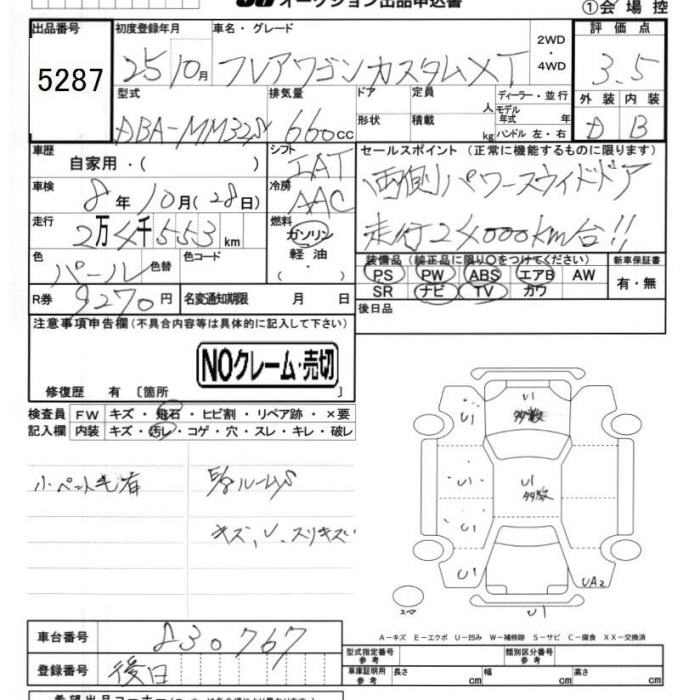 オークション出品申込書
①会場控
出品番号 初度登録年月 車名・グレード 2WD・4WD 評価点
5287 25 10月 フレアワゴン カスタム XT 3.5
型式 排気量 ドア 定員 人 ディーラー・並行 外装 内装
DBA-MM32S 660cc 形状 積載 kg モデル年式 年 ハンドル 左・右 D B
車歴 自家用・( ) シフト IAT セールスポイント (正常に機能するものに限ります)
車検 8年 10月(28日) 冷房 AAC 両側パワースライドドア
走行 2万4千553km 燃料 ガソリン 軽油 ( ・ ) 走行24000km台!!
色 パール 色替 色コード 装備品 (純正品に限り○をつけてください) 新車保証書
PS PW ABS エアB AW 有・無
R券 9270円 名変通知期限 月 日 SR ナビ TV カワ
注意事項申告欄(不具合内容等は具体的に記入して下さい) 後日品
NOクレーム・売切
修復歴 有 〔箇所 〕
検査員 FW キズ・飛石・ヒビ割・リペア跡・×要
記入欄 内装 キズ・汚レ・コゲ・穴・スレ・キレ・破レ
小・ペット毛有
キズ、U、スリキズ
U1 U1 多数
U1 U1 多数
U1
U1 UA2
スペア U1
A-キズ E-エクボ U-凹み W-補修跡 S-サビ C-腐食 XX-交換済
車台番号 830767 型式指定番号 参考 類別区分番号 参考
登録番号 後日 車庫証明用 参考 長さ 幅 高さ